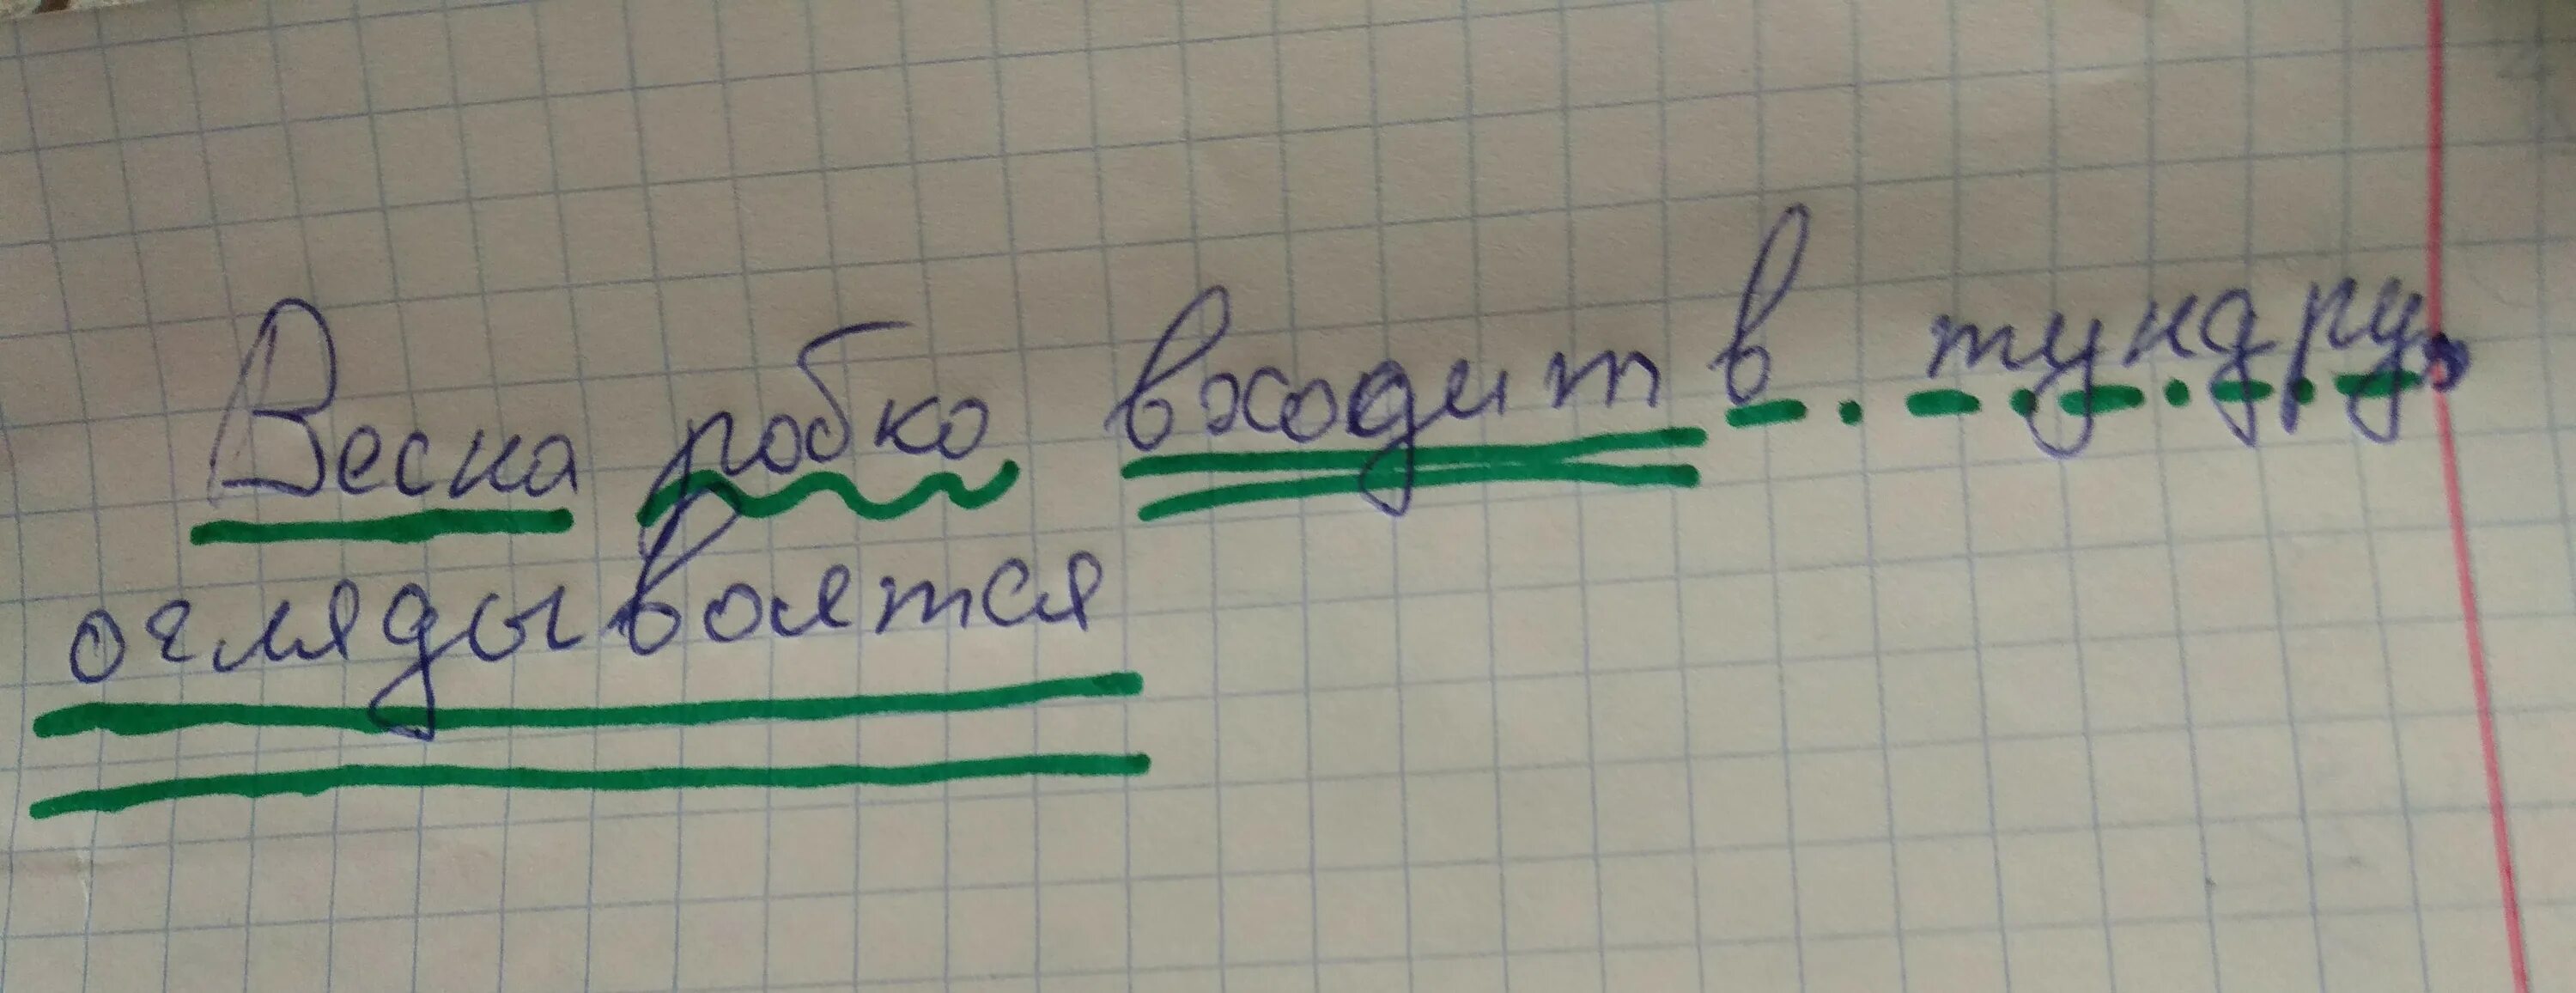 Весна робко входит в тундру,
оглядывается